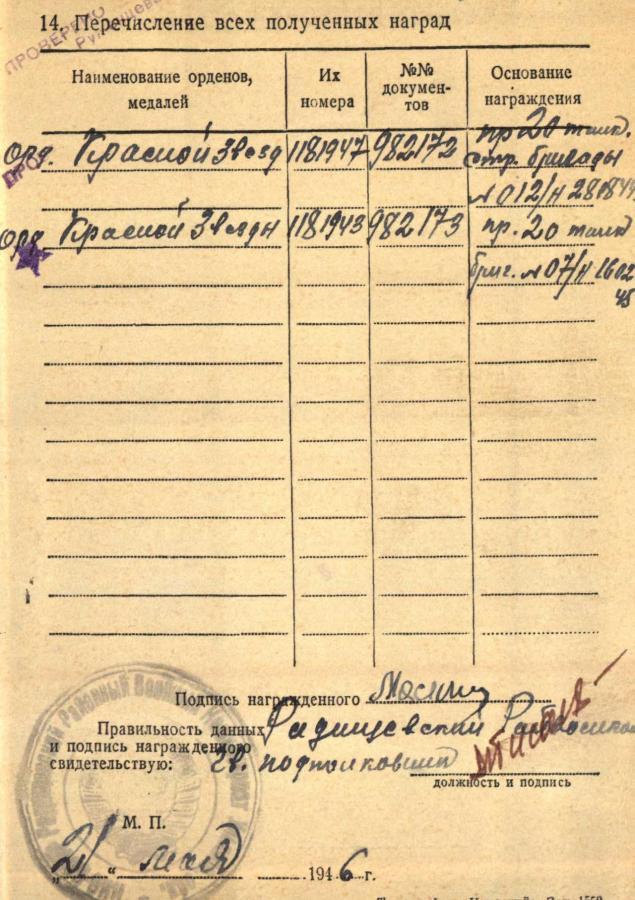 ПРОВЕРЕНО
14. Перечисление всех полученных наград
Наименование орденов, медалей
Их номера
№№ докумен-тов
Основание награждения
Орд. Красной Звезд 1181947 982172 пр 20 танк.
стр. бригады
N 012/н 28.08.44
Орд Красной Звезды 1181943 982173 пр. 20 танк
бриг. N 07/н 16.02
45
Подпись награжденного
Правильность данных Радищевский
и подпись награжденного
свидетельствую: гв. подполковник
должность и подпись
М. П.
„21“ мая 1946 г.